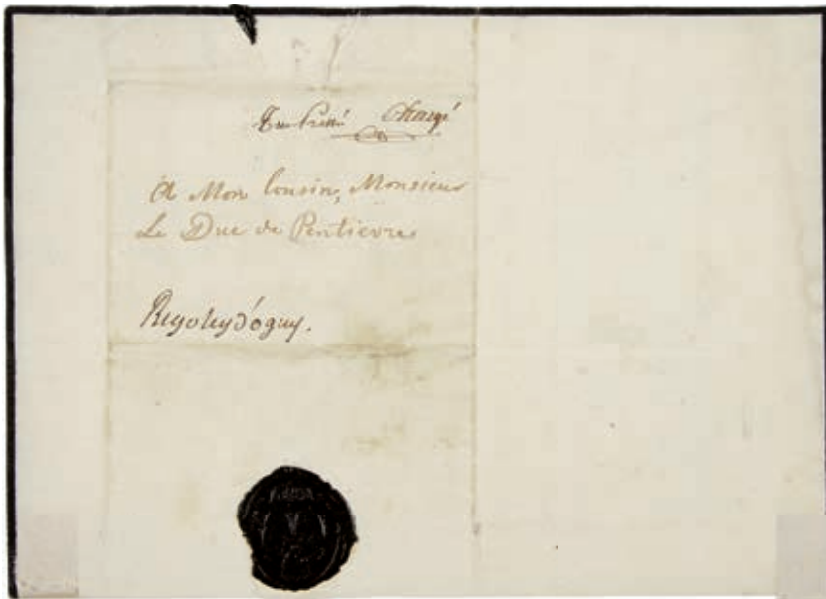 Très Pressé Chargé
A Mon Cousin, Monsieur
Le Duc de Pentievre
Rigoley d'ogny.